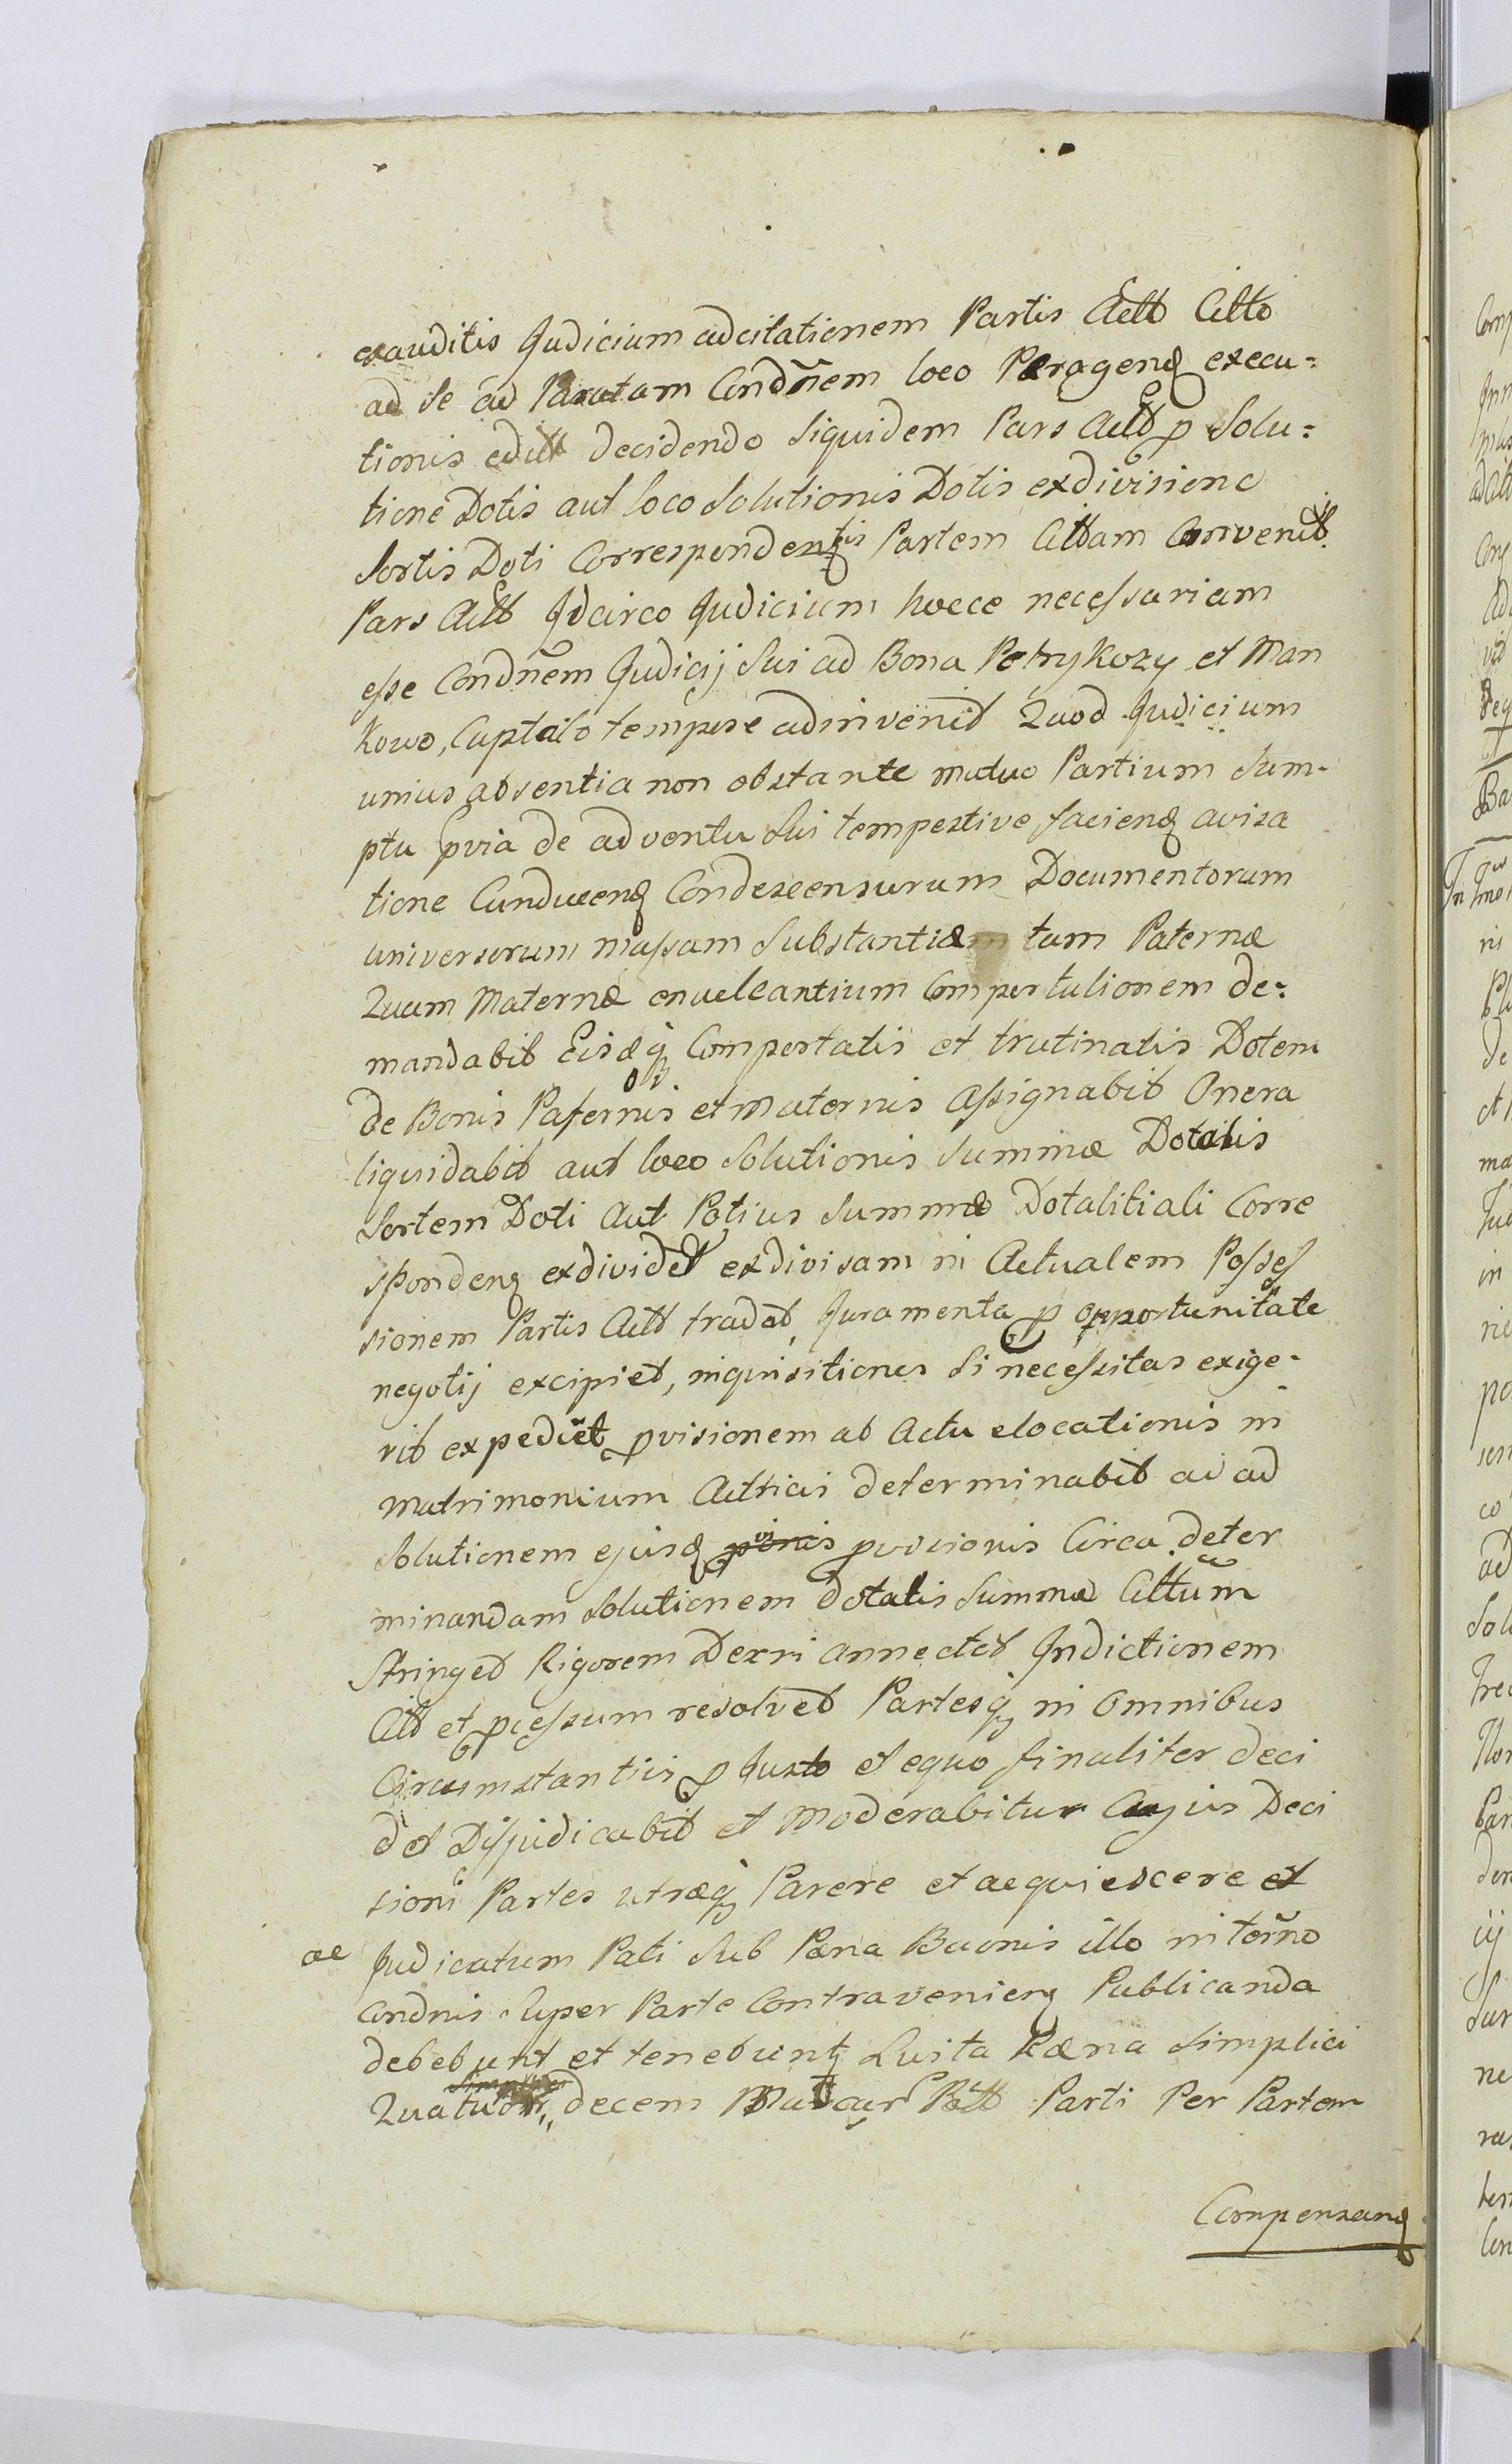 exauditis Judicium adcitationem Partis Actt Citto
ad se ad Paratam Condñem loco Peragend execu=
tionis edit decidendo Siquidem Pars Actt p Solu=
tione Dotis aut loco Solutionis Dotis exdivisione
Sortis Doti Correspondentis Partem Cittam Convenit
Pars Actt Idcirco Judicium hocce necessariam
esse Condnem Judicij Sui ad Bona Petrykozy et Man
kowo, Captato tempore adinvenit Quod Judicium
unius absentia non obstante mutuo Partium Sum-
ptu pvia de adventu Sui tempestive faciend avisa
tione Conducend Condescensurum Documentorum
universorum massam Substantiæ tam Paternæ
Quam Maternæ enucleantium Comportationem de=
mandabit Eisdq Comportatis et trutinatis Dotem
de Bonis Paternis et Maternis Assignabit Onera
liquidabit aut loco Solutionis Summæ Dotalis
Sortem Doti Aut Potius Summæ Dotalitiali Corre
sponden exdividet exdivisam in Actualem Posses
sionem Partis Actt tradet, Juramenta p opportunitate
negotij excipiet, inquisitiones Si necessitas exige-
rit expediet pvisionem ab Actu elocationis in
Matrimonium Actricis determinabit ac ad
Solutionem ejusd provisionis Circa deter
minandam Solutionem dotalis Summæ Cittum
Stringet Rigorem Dexri annectet Indictionem
Citt et pcessum resolvet Partesq in Omnibus
Circumstantiis p Justo et equo finaliter deci
det Disjudicabit et Moderabitur Cujus Deci
sioni Partes utræq Parere et acquiescere et
ac Judicatum Pati Sub Pæna Bannis illo in torno
Condnis Super Parte Contravenien Publicanda
debebunt et tenebunt Luita Pæna Simplici
Quatuor decem Marcar Pott Parti Per Partem
Compensand